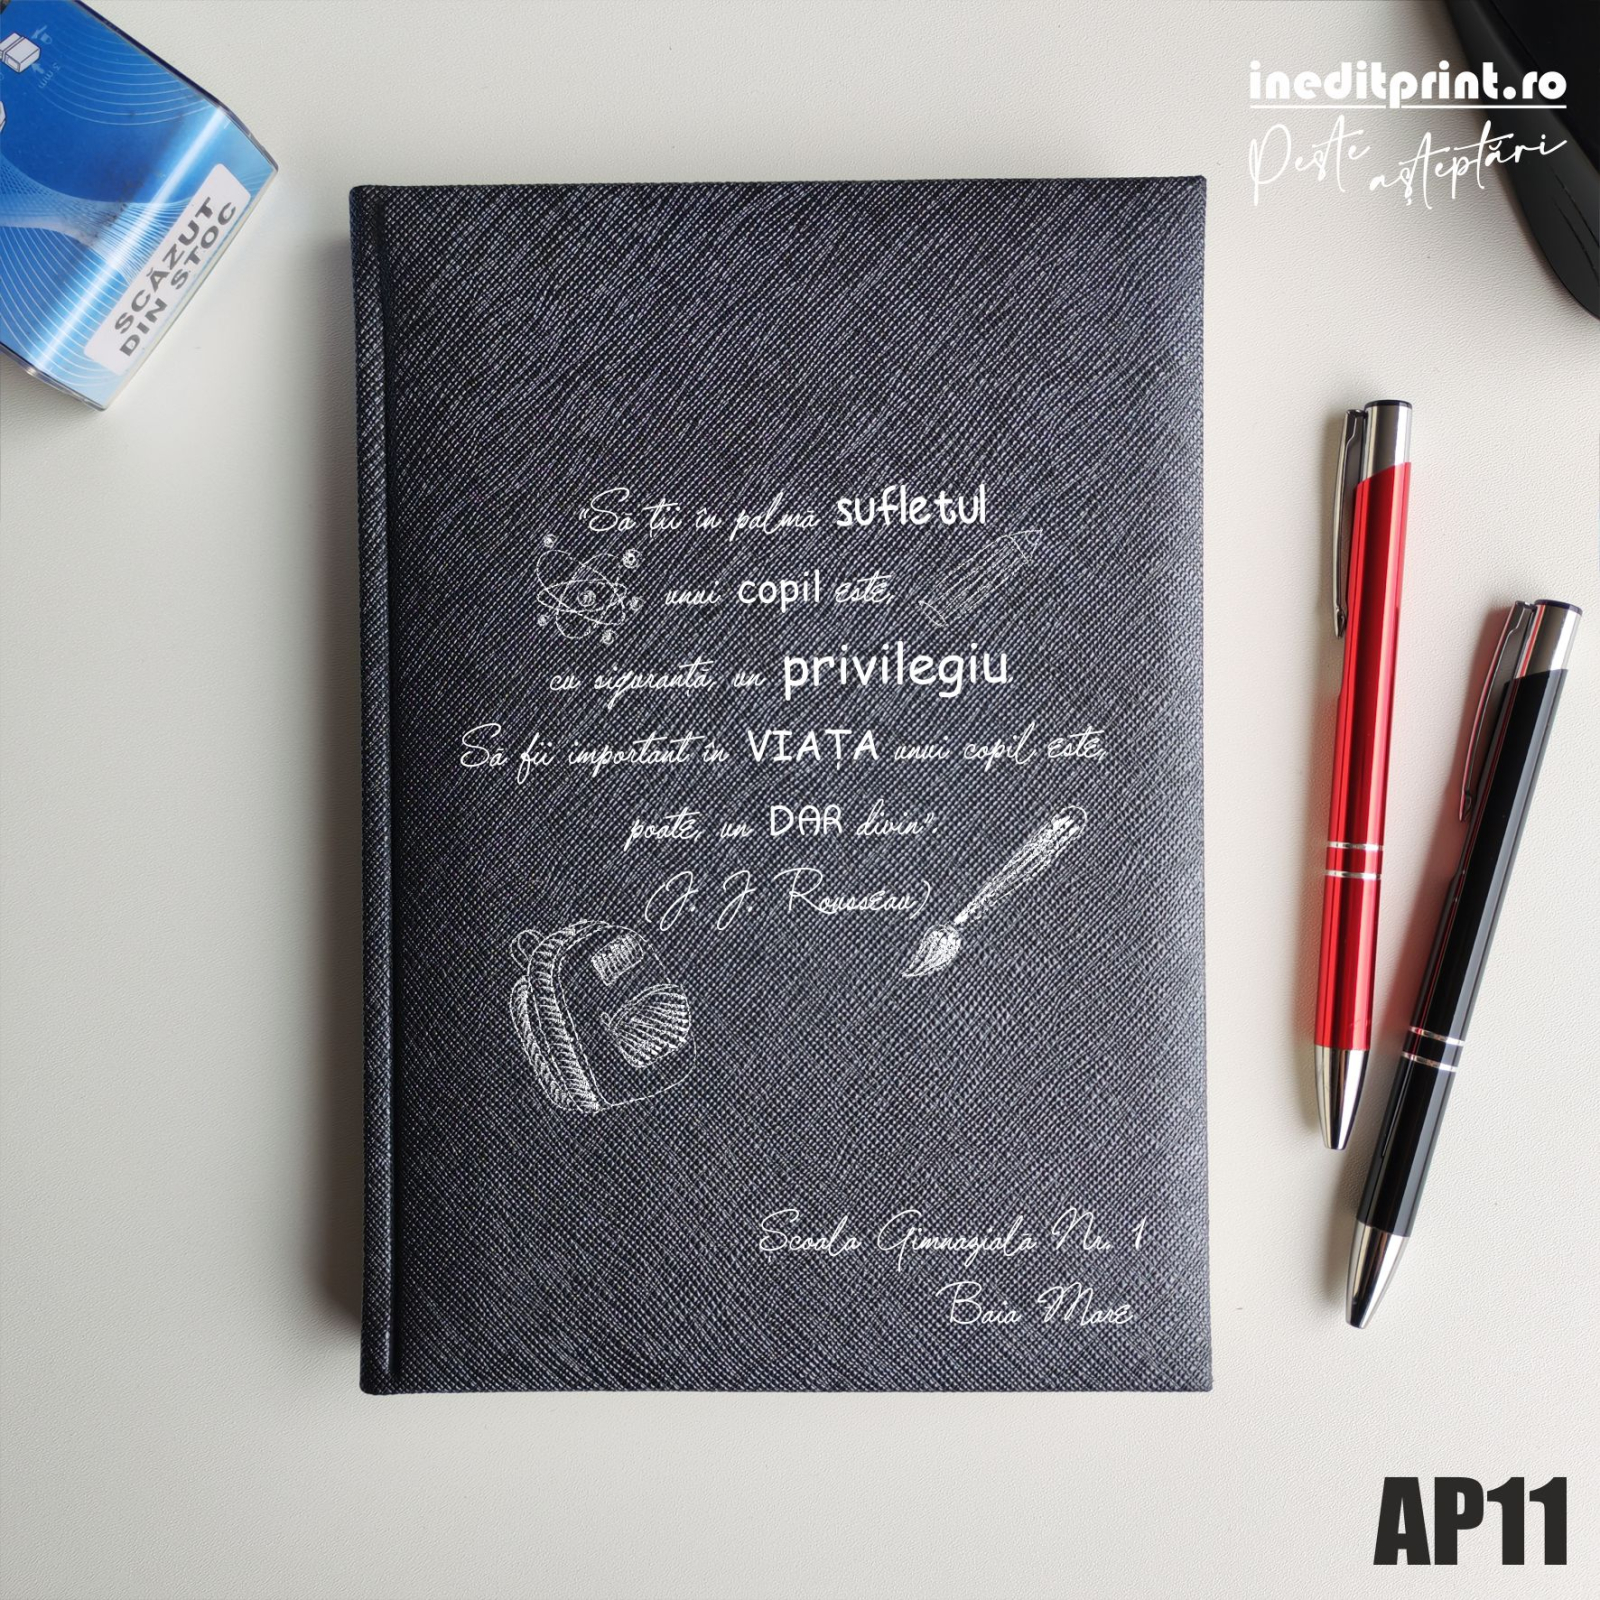 ineditprint.ro
Peste așteptări
SCĂZUT
DIN STOC
"Să ții în palmă sufletul
unui copil este,
cu siguranță, un privilegiu.
Să fii important în VIAȚA unui copil este,
poate, un DAR divin".
(J. J. Rousseau)
Școala Gimnazială Nr. 1
Baia Mare
AP11